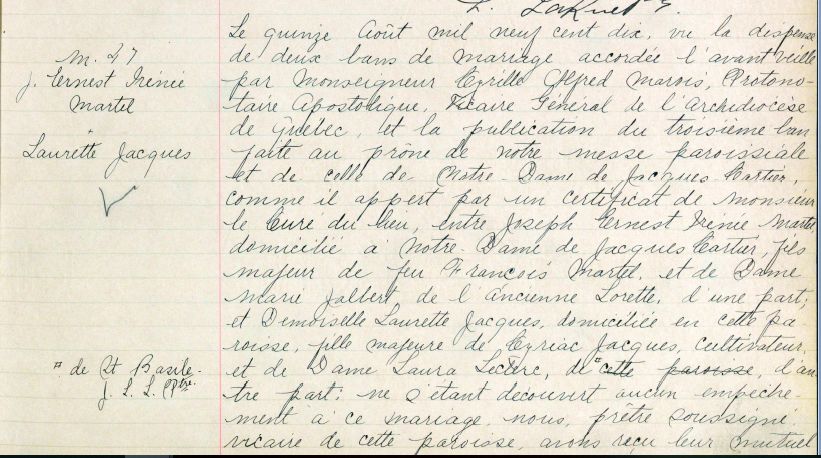 M. 27
J. Ernest Irénie
Martel
"
Laurette Jacques
Le quinze Août mil neuf cent dix, vu la dispense
de deux bans de mariage accordée l'avant veille
par Monseigneur Cyrille Alfred Marois, Protono-
taire Apostolique, Vicaire Général de l'Archidiocèse
de Québec, et la publication du troisième ban
faite au prône de notre messe paroissiale
et de celle de Notre-Dame de Jacques Cartier,
comme il appert par un certificat de Monsieur
le Curé du lieu, entre Joseph Ernest Irénie Martel,
domicilié à Notre-Dame de Jacques Cartier, fils
majeur de feu François Martel, et de Dame
Marie Jalbert de l'Ancienne Lorette, d'une part;
et Demoiselle Laurette Jacques, domiciliée en cette pa
roisse, fille majeure de Cyriac Jacques, cultivateur,
et de Dame Laura Leclerc, de ¤ cette paroisse, d'au
tre part; ne s'étant découvert aucun empêche-
ment à ce mariage, nous, prêtre soussigné,
vicaire de cette paroisse, avons reçu leur mutuel
¤ de St Basile.
J. L. L. Ptre.